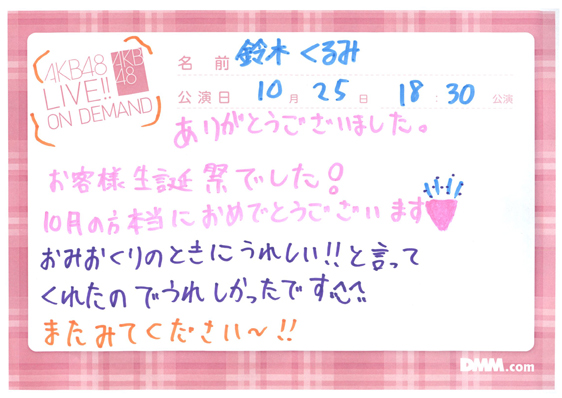 AKB48
LIVE!!
ON DEMAND
AKB
48
名前 鈴木くるみ
公演日 10月25日 18:30 公演
ありがとうございました。
お客様生誕祭でした!
10月の方本当におめでとうございます
おみおくりのときにうれしい!!と言って
くれたのでうれしかったです^^!!
またみてください〜!!
DMM.com